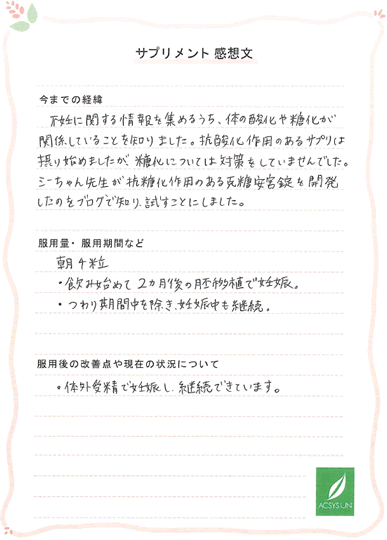 サプリメント 感想文
今までの経緯
不妊に関する情報を集めるうち、体の酸化や糖化が
関係していることを知りました。抗酸化作用のあるサプリは
摂り始めましたが 糖化については対策をしていませんでした。
ミーちゃん先生が抗糖化作用のある克糖安宮錠を開発
したのをブログで知り、試すことにしました。
服用量・服用期間など
朝4粒
・飲み始めて2カ月後の胚移植で妊娠。
・つわり期間中を除き、妊娠中も継続。
服用後の改善点や現在の状況について
・体外受精で妊娠し、継続できています。
ACSYSUN